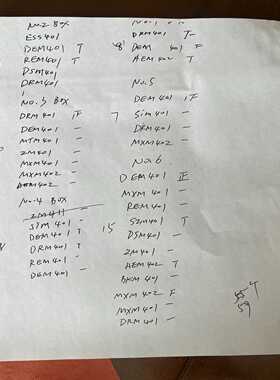 No.2 Box
ESS401
DEM401 T
REM401 T
DSM401
DRM401
No.3 Box
DRM 401 正
DEM401 -
MTM 401 -
ZM401 -
MXM401 -
MXM402 -
AEM402 -
No.4 Box
SIM 401 -
DEM401 T
DRM401 T
REM401 -
DEM401 -
DRM401 T
DEM 401 F
AEM402 T
No.5
DEM401
7 SIM401 -
DRM401 -
MXM402 -
No.6
DEM401 正
MXM 401 -
REM401 -
15 SZM401 T
DSM401 -
ZM401 -
AEM402 T
MXM402 F
MXM401 -
DRM401 -
59